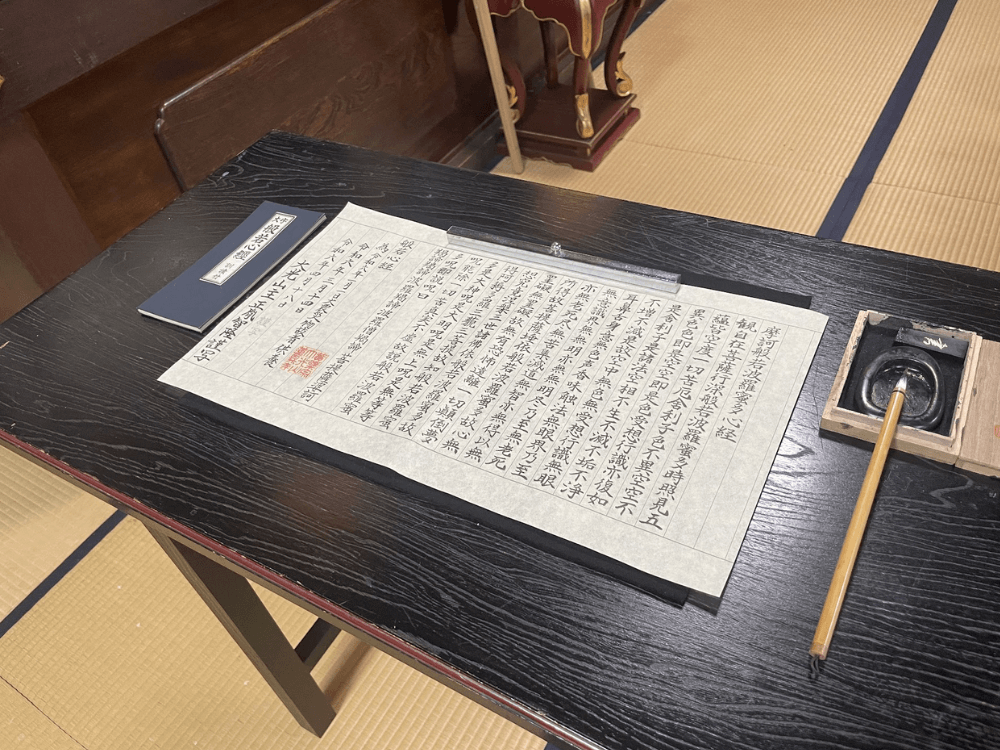 摩訶般若波羅蜜多心経
観自在菩薩行深般若波羅蜜多時照見五
蘊皆空度一切苦厄舎利子色不異空空不
異色色即是空空即是色受想行識亦復如
是舎利子是諸法空相不生不滅不垢不浄
不増不減是故空中無色無受想行識無眼
耳鼻舌身意無色声香味触法無眼界乃至
無意識界無無明亦無無明尽乃至無老死
亦無老死尽無苦集滅道無智亦無得以無
所得故菩提薩埵依般若波羅蜜多故心無
罣礙無罣礙故無有恐怖遠離一切顛倒夢
想究竟涅槃三世諸仏依般若波羅蜜多故
得阿耨多羅三藐三菩提故知般若波羅蜜
多是大神呪是大明呪是無上呪是無等等
呪能除一切苦真実不虚故説般若波羅蜜
多呪即説呪曰
羯諦羯諦波羅羯諦波羅僧羯諦菩提薩婆訶
般若心経
令和八年
大光山主
智隆謹写
大字
般若心經